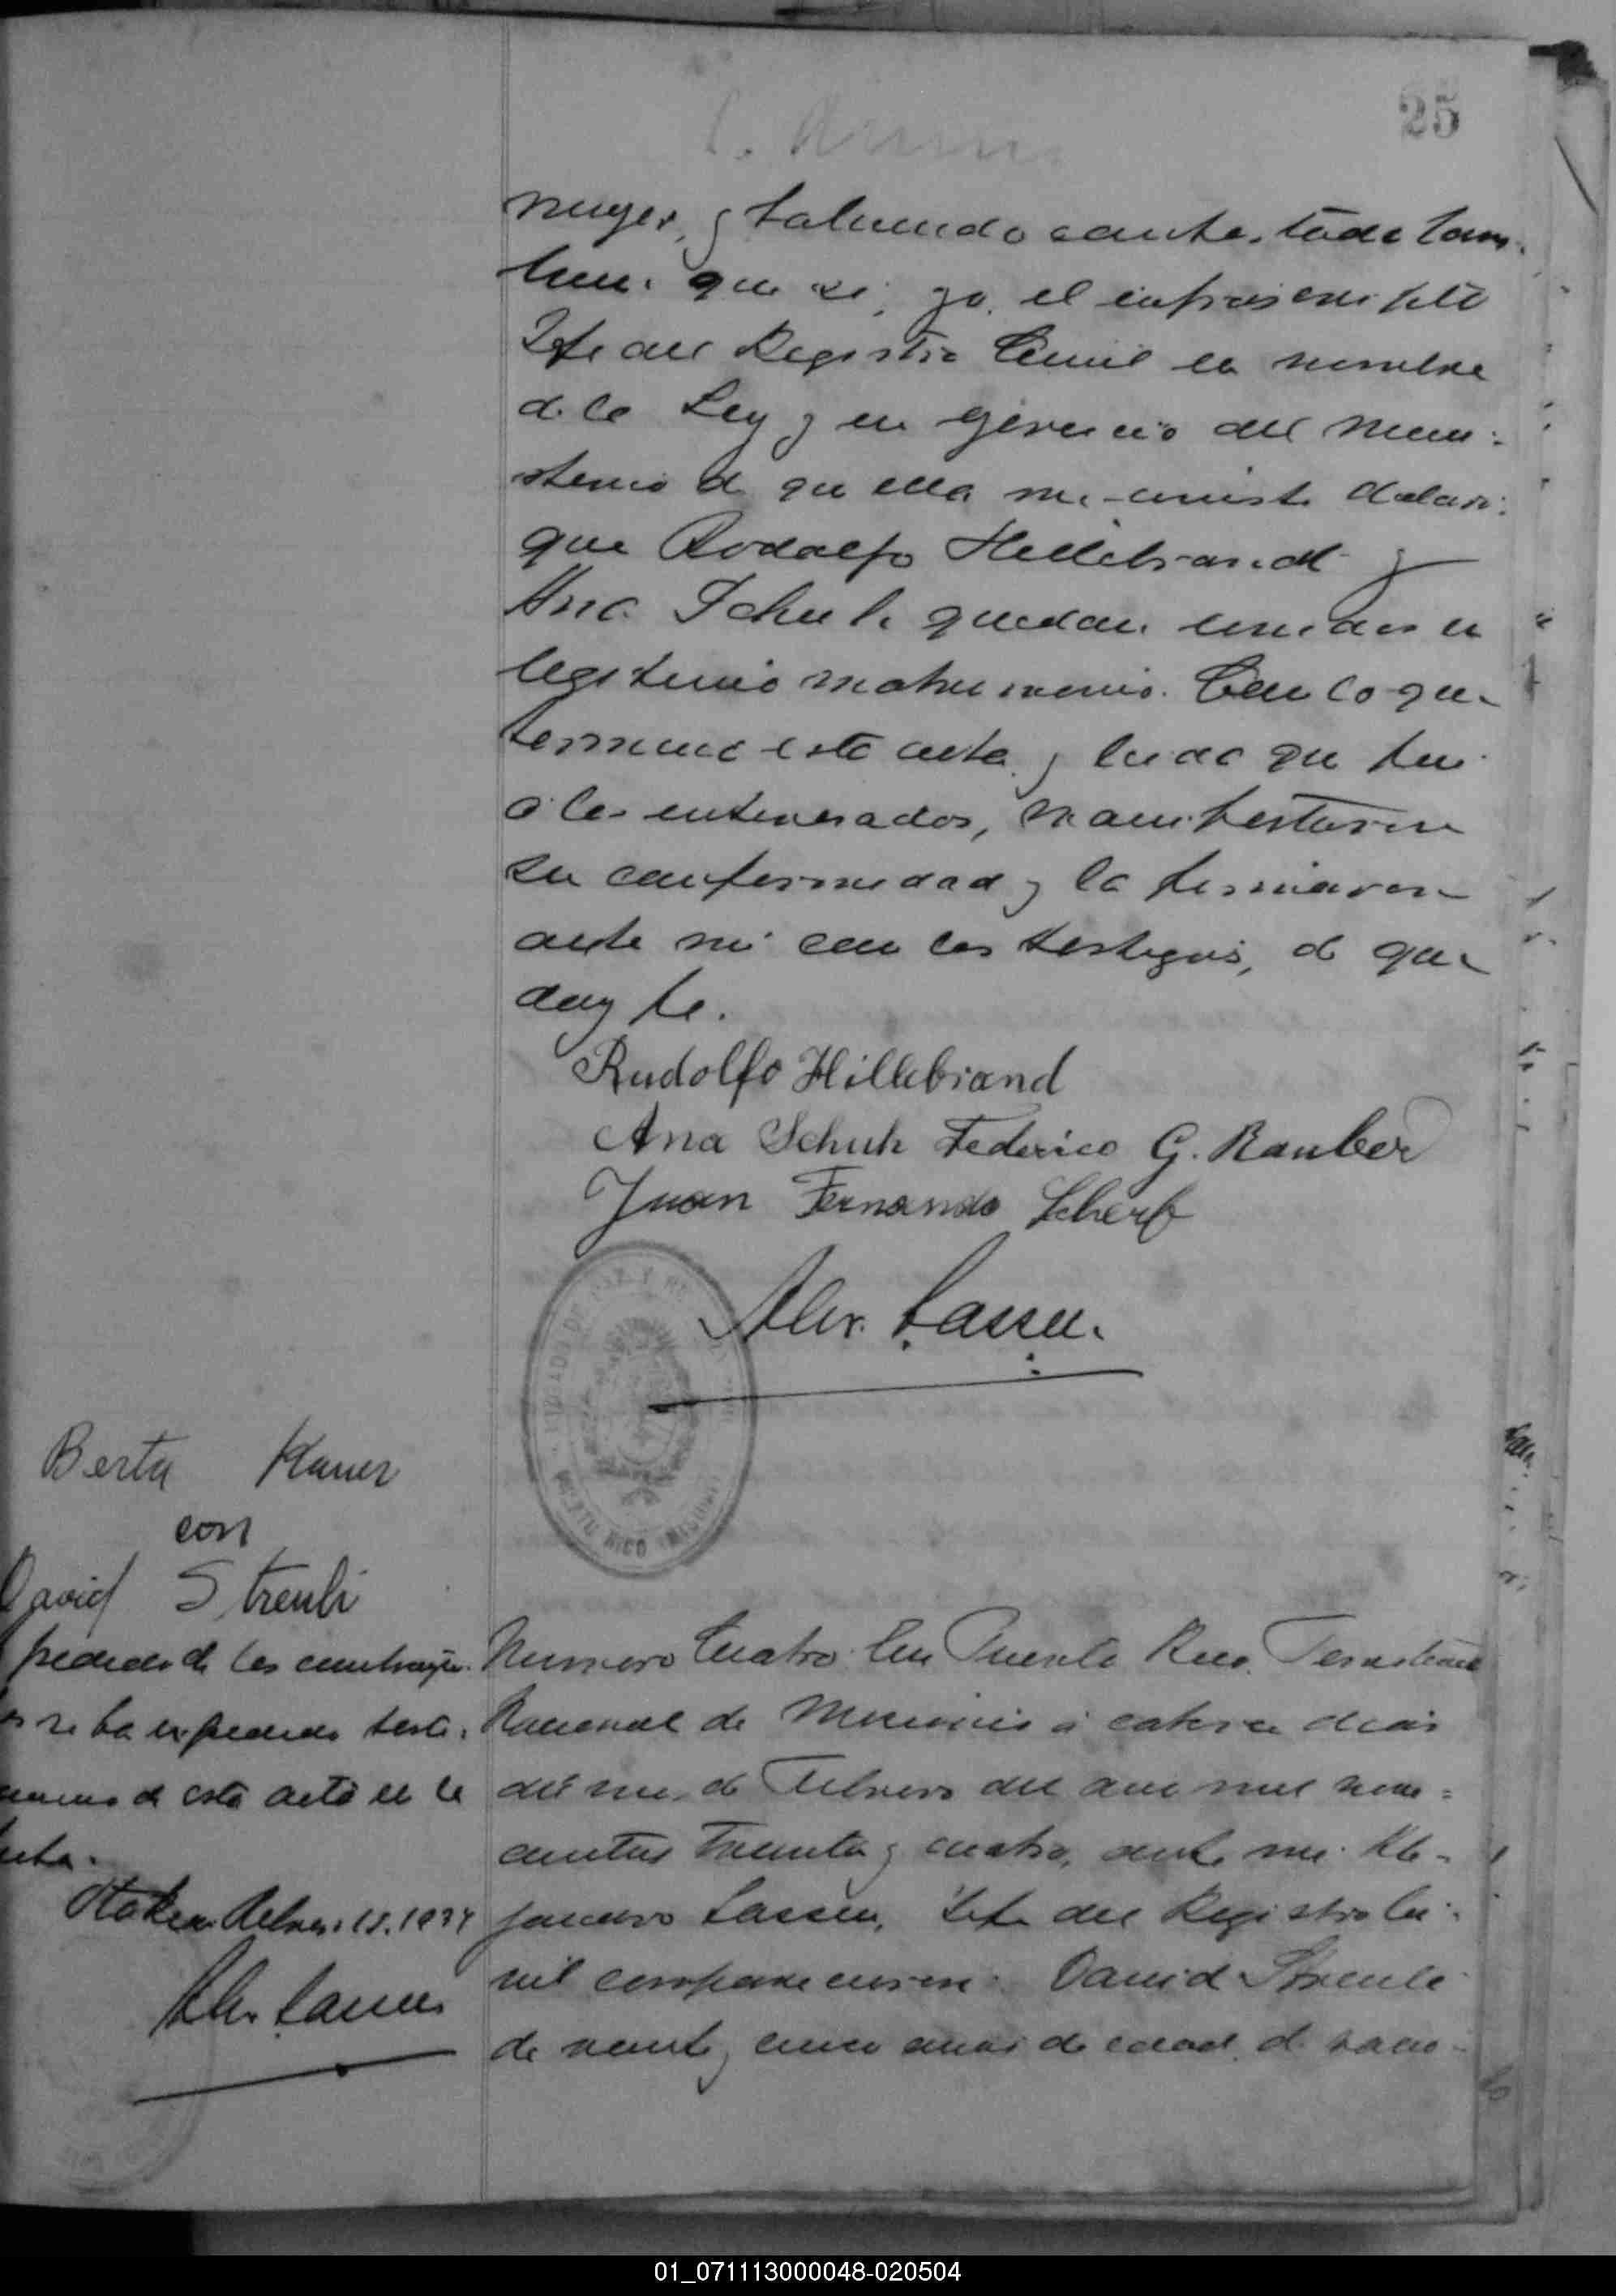 25
muger, y habiendo contestado tam-
bien que si, yo, el infrascripto
Jefe del Registro Civil en nombre
de la Ley y en gercicio del minis-
sterio de que ella me inviste declaro:
que Rodolfo Hillebrandt y
Ana Schuh quedan unidos en
legitimo matrimonio. Con lo que
termino esta acta y leida que fué
á los interesados, manifestaron
su conformidad y la firmaron
ante mi con los testigos, de que
doy fe.
Rudolfo Hillebrand
Ana Schuh Federico G. Rauber
Juan Fernando Scherf
Alex. Lassen.
PUERTO RICO
Berta
con
David Streuli
pedido de los contrayen-
se ha expedido testi-
monio de esta acta en la
fecha.
Febrero 15. 1934
Alex Lassen
Numero Cuatro. En Puerto Rico, Territorio
Nacional de Misiones á catorce dias
del mes de Febrero del año mil nove-
cientos treinta y cuatro, ante mi Ale-
jandro Lassen, Jefe del Registro Ci-
vil comparecieron: David Streuli
de veinte y cinco años de edad, de nacio-
01_071113000048-020504